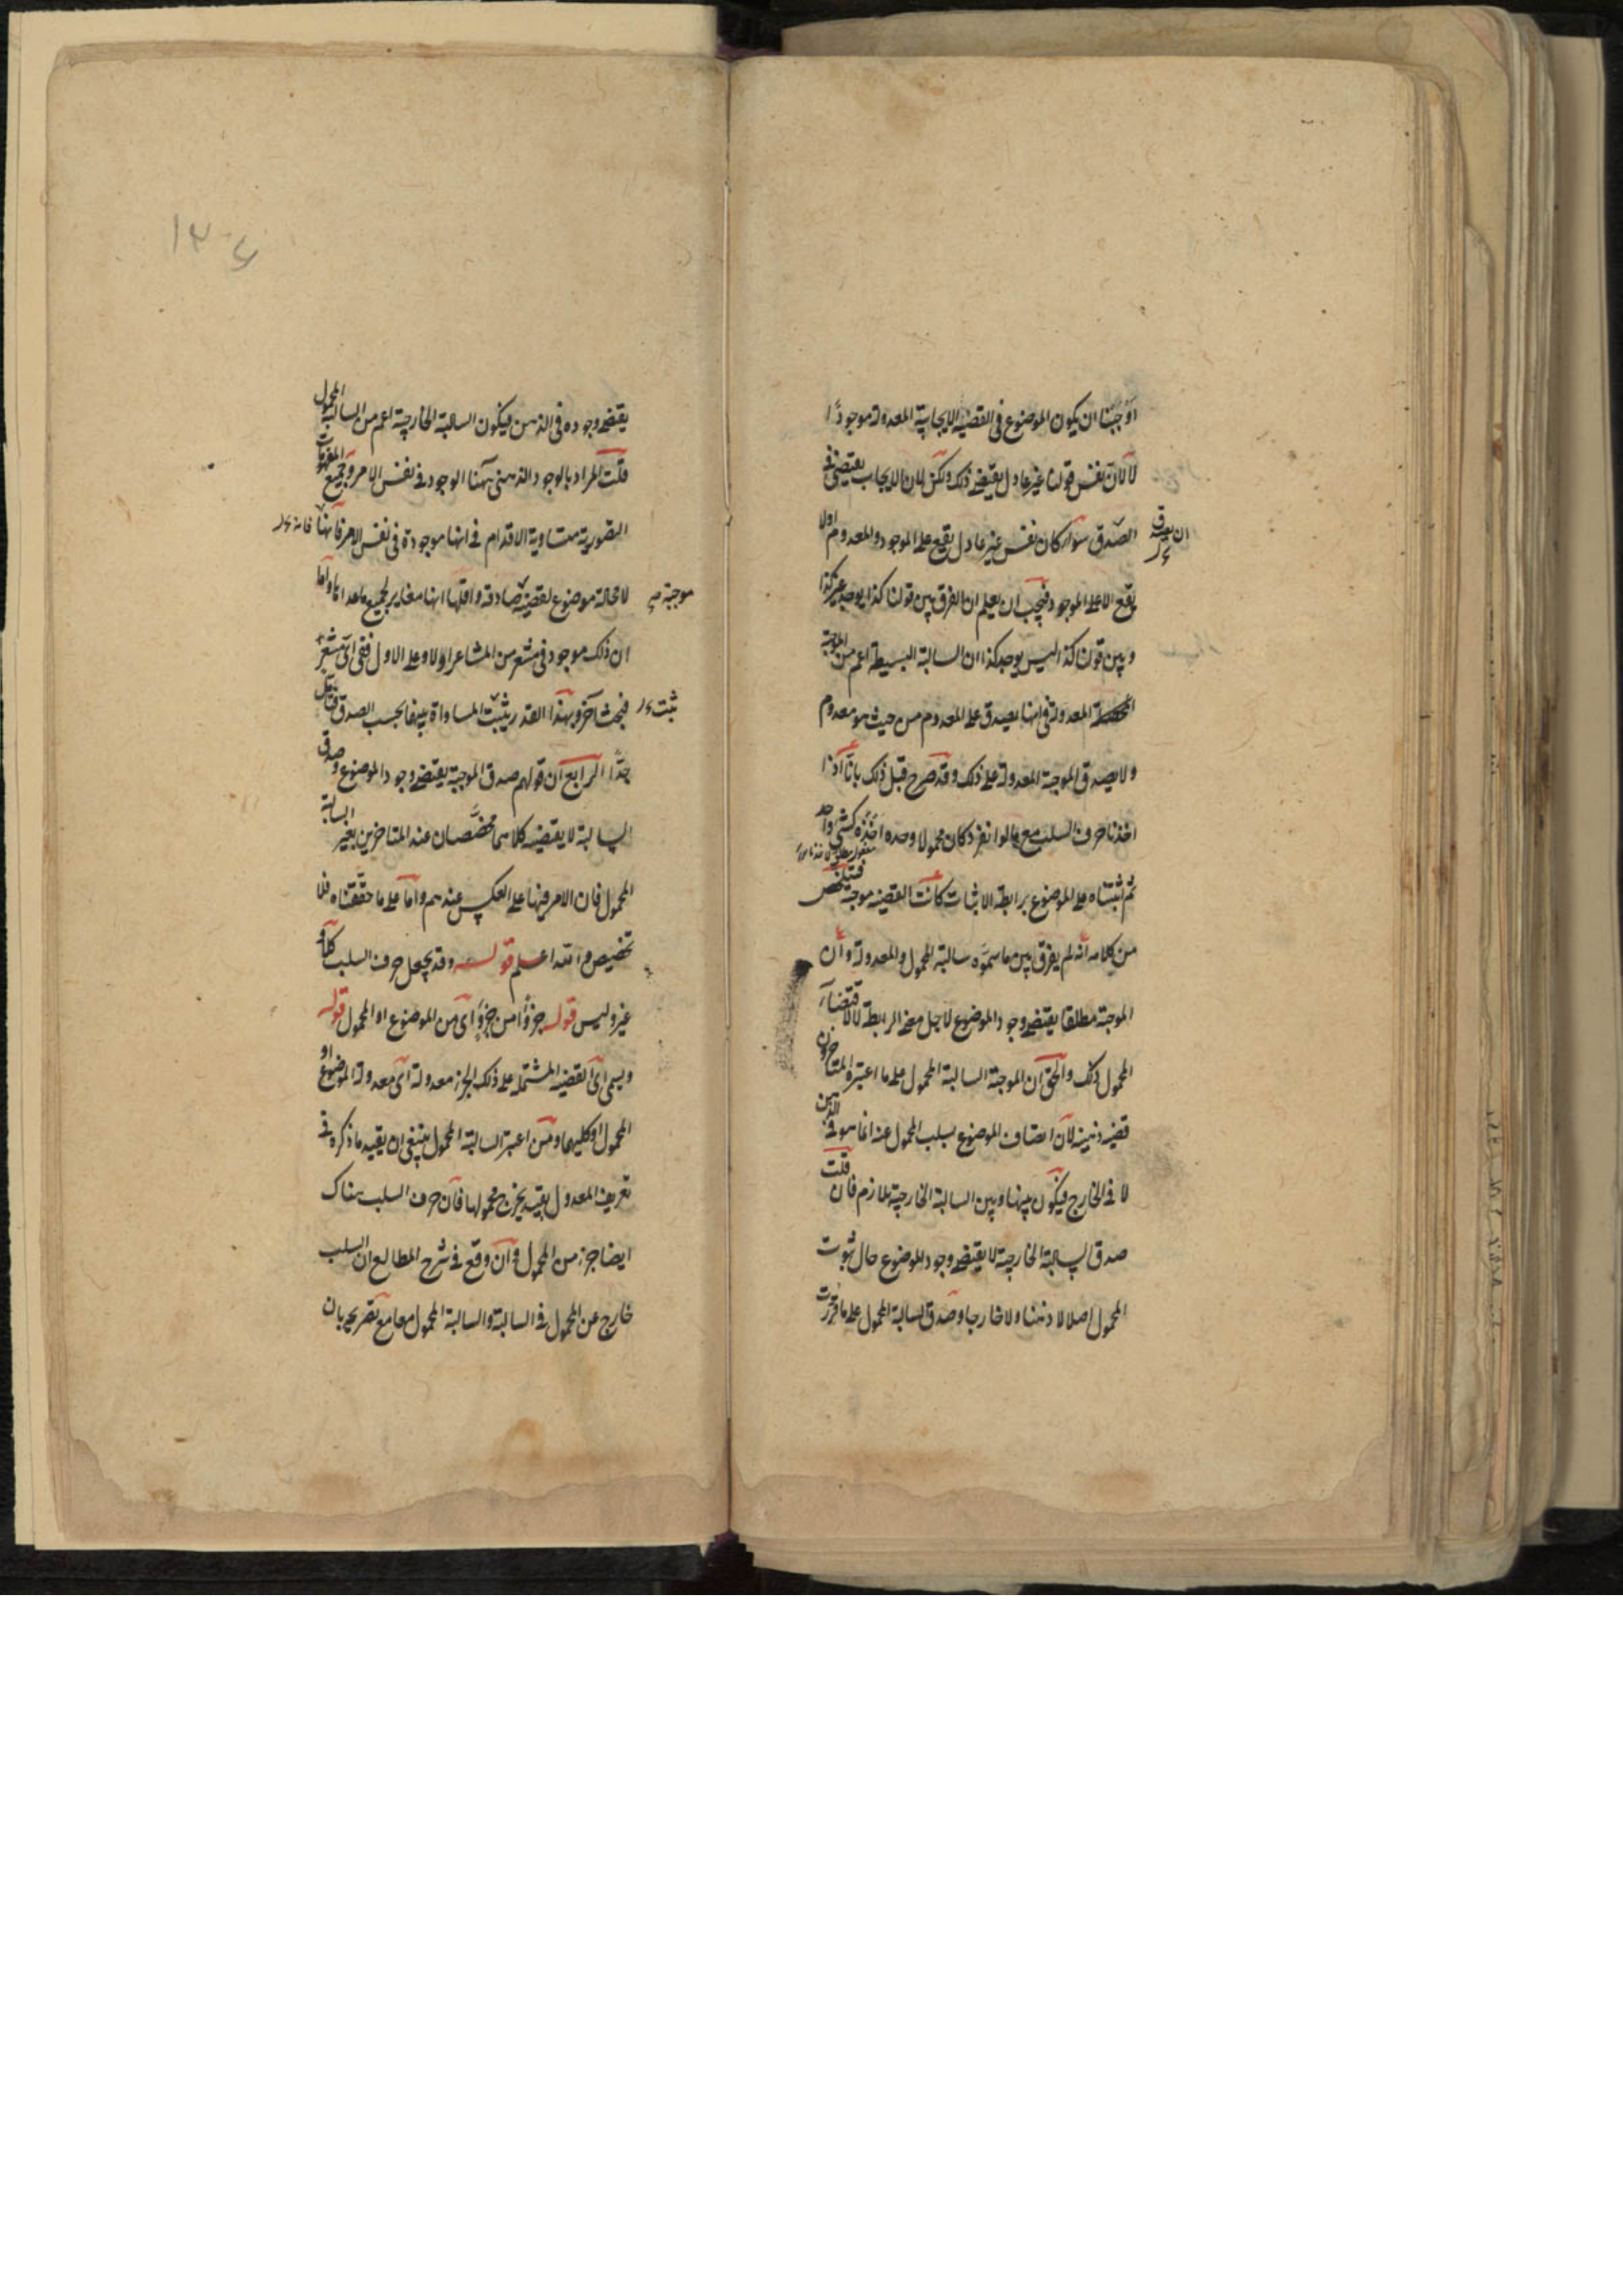 اوجبنا ان يكون الموضوع في القضية الايجابية المعدولة موجودا
لا لان نفس قولنا غير عادل يقتضي ذلك ولكن لان الايجاب يقتضي في
ان يصدق
الصدق سواء كان نفس غير عادل يقع على الموجود والمعدوم اولا
يقع الا على الموجود فيجب ان يعلم ان الفرق بين قولنا كذا يوجد غير كذا
وبين قولنا كذا ليس يوجد كذا ان السالبة البسيطة اعم من الموجبة
المعدولة في انها يصدق على المعدوم من حيث هو معدوم
ولا يصدق الموجبة المعدولة على ذلك وقد صرح قبل ذلك بانا اذا
اخذنا حرف السلب مع ما لو انفرد كان محمولا وحده اخذه كشئ واحد
ثم ثبتناه على الموضوع برابطة الاثبات كانت القضية موجبة فتلخص
من كلامه انه لم يفرق بين ما سموه سالبة المحمول والمعدولة وان
الموجبة مطلقا يقتضي وجود الموضوع لاجل معنى الرابطة لا لاقتضاء
المحمول ذلك والحق ان الموجبة السالبة المحمول على ما اعتبره المتاخرون
قضية ذهنية لان اتصاف الموضوع بسلب المحمول عنه انما هو في الذهن
لا في الخارج فيكون بينها وبين السالبة الخارجية تلازم فان قلت
صدق السالبة الخارجية لا يقتضي وجود الموضوع حال ثبوت
المحمول اصلا لا ذهنا ولا خارجا وصدق السالبة المحمول على ما قررت
١٢٦
يقتضي وجوده في الذهن فيكون السالبة الخارجية اعم من السالبة المحمول
قلت المراد بالوجود الذهني ههنا الوجود في نفس الامر وجميع المفهومات
التصورية متساوية الاقدام في انها موجودة في نفس الامر فانها
موجبة
لا محالة موضوع لقضية صادقة واقلها انها مغاير لجميع ما عداها واما
ان ذلك موجود في مشعر من المشاعر اولا وعلى الاول ففي اي مشعر
ثبت
فبحث اخر وبهذا القدر يثبت المساواة بينهما بحسب الصدق فتأمل
جدا الرابع ان قولهم صدق الموجبة يقتضي وجود الموضوع وصدق
السالبة لا يقتضيه كلاهما مخصصان عند المتاخرين بغير السالبة
المحمول فان الامر فيها على العكس عندهم واما على ما حققناه فلا
تخصيص والله اعلم قوله وقد يجعل حرف السلب كلا و
غير وليس قوله جزؤا من جزؤ اي من الموضوع او المحمول قوله
ويسمى اي القضية المشتملة على ذلك الجزء معدولة اي معدولة الموضوع او
المحمول او كليهما ومن اعتبر السالبة المحمول ينبغي ان يقيد ما ذكره في
تعريف المعدول بقيد يخرج محمولها فان حرف السلب هناك
ايضا جزء من المحمول وان وقع في شرح المطالع ان السلب
خارج عن المحمول في السالبة والسالبة المحمول معا مع تصريحه بان